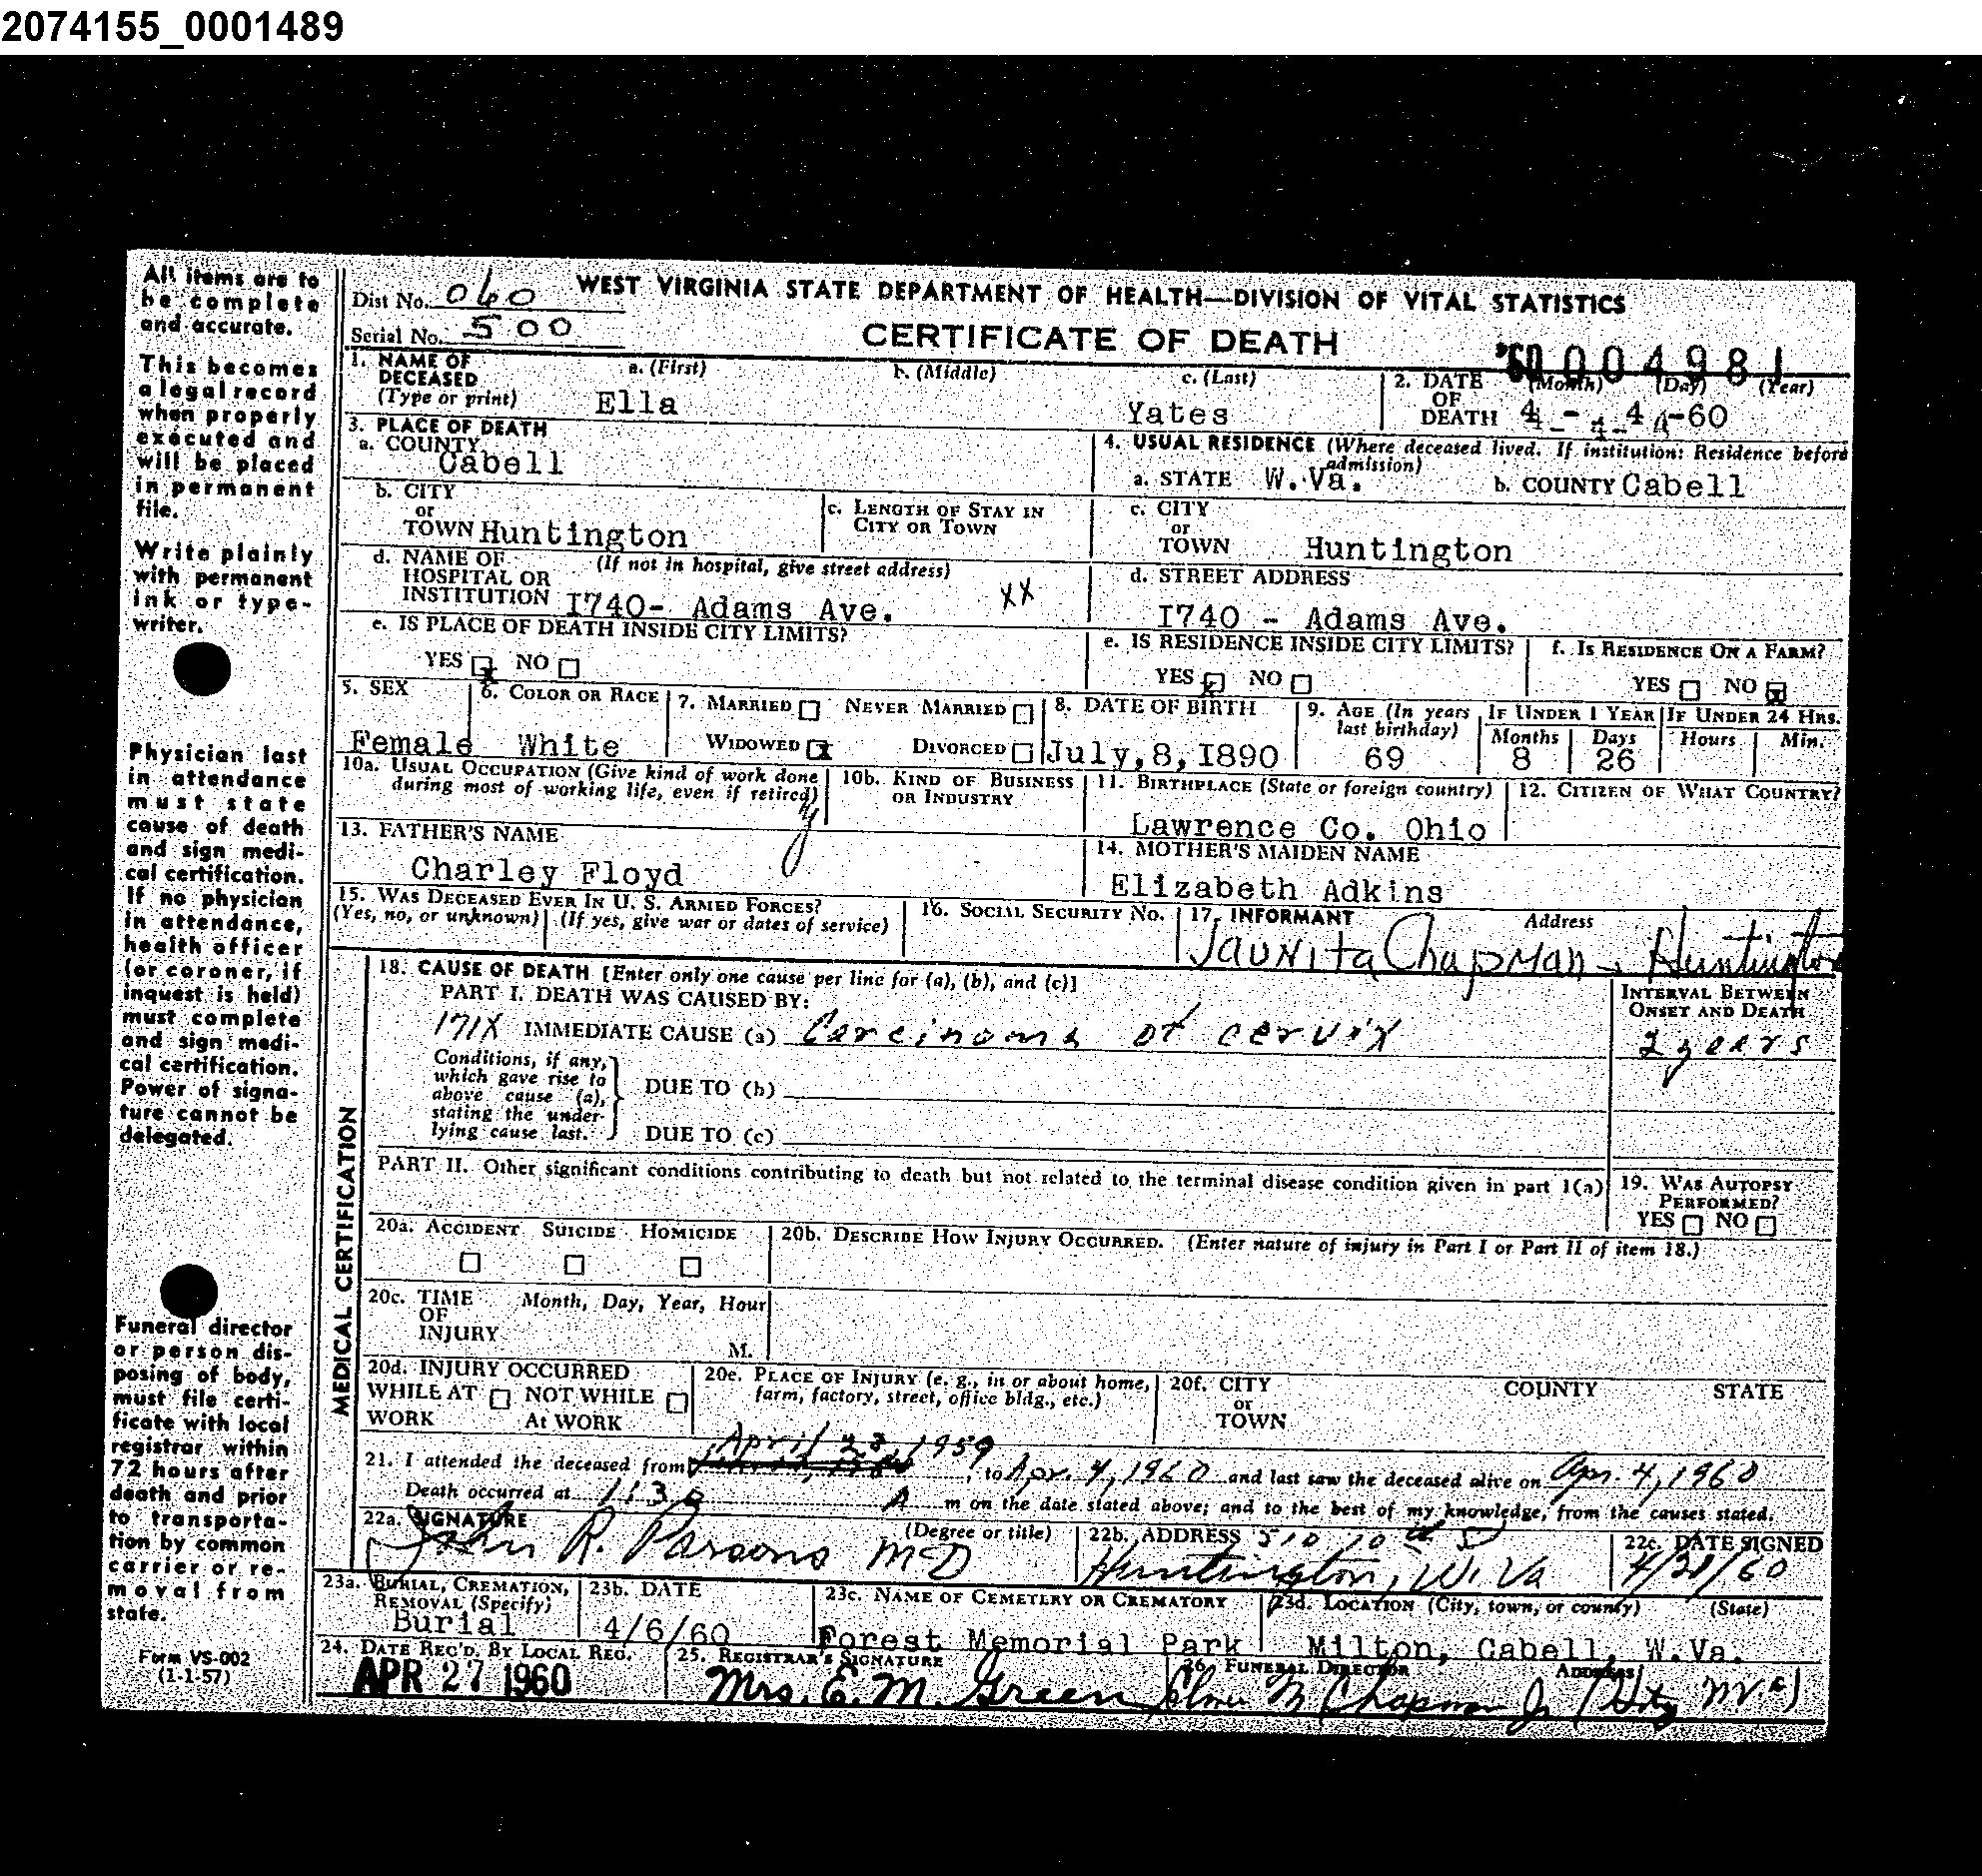 2074155_0001489
All items are to
be complete
and accurate.
This becomes
a legal record
when properly
executed and
will be placed
in permanent
file.
Write plainly
with permanent
ink or type-
writer.
Physician last
in attendance
must state
cause of death
and sign medi-
cal certification.
If no physician
in attendance,
health officer
(or coroner, if
inquest is held)
must complete
and sign medi-
cal certification.
Power of signa-
ture cannot be
delegated.
Funeral director
or person dis-
posing of body,
must file certi-
ficate with local
registrar within
72 hours after
death and prior
to transporta-
tion by common
carrier or re-
moval from
state.
Form VS-002
(1-1-57)
Dist No. 060 WEST VIRGINIA STATE DEPARTMENT OF HEALTH—DIVISION OF VITAL STATISTICS
Serial No. 500 CERTIFICATE OF DEATH
'60 004981
1. NAME OF DECEASED (Type or print) a. (First) b. (Middle) c. (Last)
Ella Yates
2. DATE OF DEATH (Month) (Day) (Year)
4 - 4 -60
3. PLACE OF DEATH
a. COUNTY Cabell
4. USUAL RESIDENCE (Where deceased lived. If institution: Residence before admission)
a. STATE W. Va. b. COUNTY Cabell
b. CITY or TOWN Huntington
c. LENGTH OF STAY IN CITY OR TOWN
c. CITY or TOWN Huntington
d. NAME OF HOSPITAL OR INSTITUTION (If not in hospital, give street address)
I740- Adams Ave. XX
d. STREET ADDRESS
I740 - Adams Ave.
e. IS PLACE OF DEATH INSIDE CITY LIMITS?
YES x NO
e. IS RESIDENCE INSIDE CITY LIMITS?
YES x NO
f. IS RESIDENCE ON A FARM?
YES NO x
5. SEX
Female
6. COLOR OR RACE
White
7. MARRIED NEVER MARRIED
WIDOWED x DIVORCED
8. DATE OF BIRTH
July,8,I890
9. AGE (In years last birthday)
69
IF UNDER 1 YEAR
Months Days
8 26
IF UNDER 24 HRS.
Hours Min.
10a. USUAL OCCUPATION (Give kind of work done during most of working life, even if retired)
10b. KIND OF BUSINESS OR INDUSTRY
11. BIRTHPLACE (State or foreign country)
Lawrence Co. Ohio
12. CITIZEN OF WHAT COUNTRY?
13. FATHER'S NAME
Charley Floyd
14. MOTHER'S MAIDEN NAME
Elizabeth Adkins
15. WAS DECEASED EVER IN U. S. ARMED FORCES?
(Yes, no, or unknown) (If yes, give war or dates of service)
16. SOCIAL SECURITY NO.
17. INFORMANT Address
Jaunita Chapman - Huntington
18. CAUSE OF DEATH [Enter only one cause per line for (a), (b), and (c)]
PART I. DEATH WAS CAUSED BY:
INTERVAL BETWEEN ONSET AND DEATH
171X IMMEDIATE CAUSE (a) Carcinoma of cervix 2 years
Conditions, if any, which gave rise to above cause (a), stating the under- lying cause last.
DUE TO (b)
DUE TO (c)
PART II. Other significant conditions contributing to death but not related to the terminal disease condition given in part 1(a)
19. WAS AUTOPSY PERFORMED?
YES NO
20a. ACCIDENT SUICIDE HOMICIDE
20b. DESCRIBE HOW INJURY OCCURRED. (Enter nature of injury in Part I or Part II of item 18.)
20c. TIME OF INJURY Month, Day, Year, Hour
M.
20d. INJURY OCCURRED
WHILE AT WORK NOT WHILE At WORK
20e. PLACE OF INJURY (e. g., in or about home, farm, factory, street, office bldg., etc.)
20f. CITY or TOWN COUNTY STATE
April 23, 1959
21. I attended the deceased from , to Apr. 4, 1960 and last saw the deceased alive on Apr. 4, 1960
Death occurred at 1:30 A m on the date stated above; and to the best of my knowledge, from the causes stated.
22a. SIGNATURE (Degree or title)
John R. Parsons MD
22b. ADDRESS 510 10th St
Huntington, W. Va
22c. DATE SIGNED
MEDICAL CERTIFICATION
23a. BURIAL, CREMATION, REMOVAL (Specify)
Burial
23b. DATE
4/6/60
23c. NAME OF CEMETERY OR CREMATORY
Forest Memorial Park
23d. LOCATION (City, town, or county) (State)
Milton, Cabell, W.Va.
24. DATE REC'D. BY LOCAL REG.
APR 27 1960
25. REGISTRAR'S SIGNATURE
Mrs. E. M. Green
26. FUNERAL DIRECTOR Address
Chapman Jr